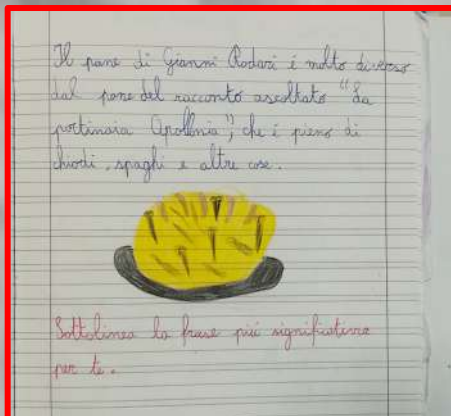 Il pane di Gianni Rodari è molto diverso
dal pane del racconto ascoltato "La
portinaia Apollonia", che è pieno di
chiodi, spaghi e altre cose.
Sottolinea la frase più significativa
per te.